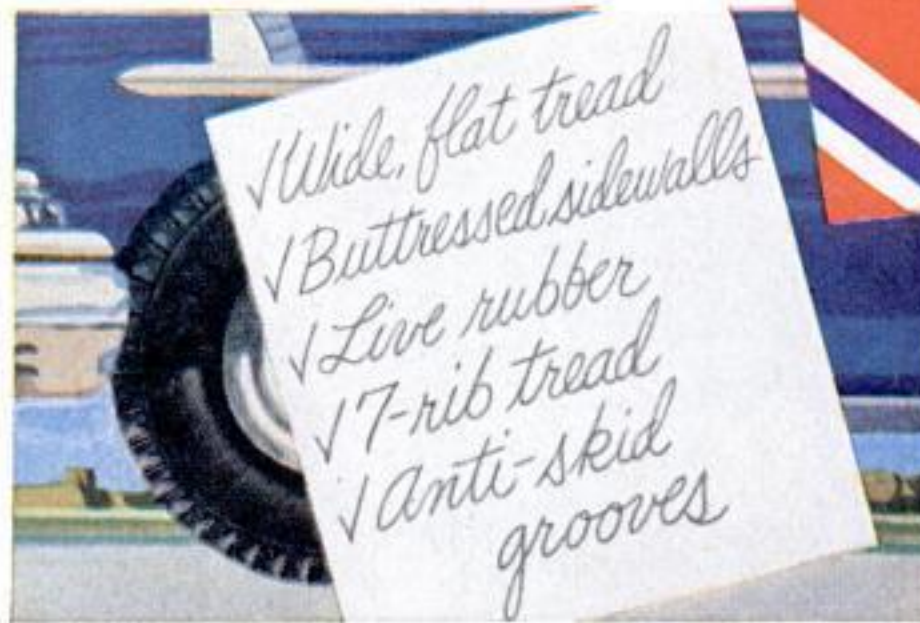 √Wide, flat tread
√Buttressed sidewalls
√Live rubber
√7-rib tread
√Anti-skid
grooves